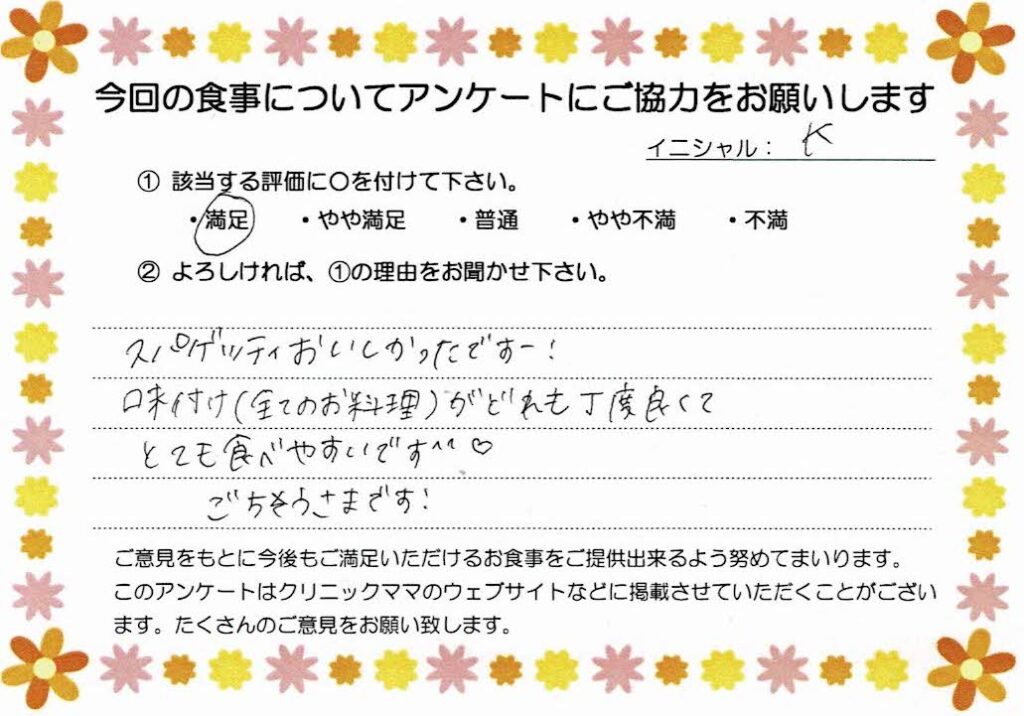 今回の食事についてアンケートにご協力をお願いします
イニシャル： K
① 該当する評価に○を付けて下さい。
・満足 ・やや満足 ・普通 ・やや不満 ・不満
② よろしければ、①の理由をお聞かせ下さい。
スパゲッティおいしかったですー！
味付け(全てのお料理)がどれも丁度良くて
とても食べやすいです^^♡
ごちそうさまです！
ご意見をもとに今後もご満足いただけるお食事をご提供出来るよう努めてまいります。
このアンケートはクリニックママのウェブサイトなどに掲載させていただくことがござい
ます。たくさんのご意見をお願い致します。